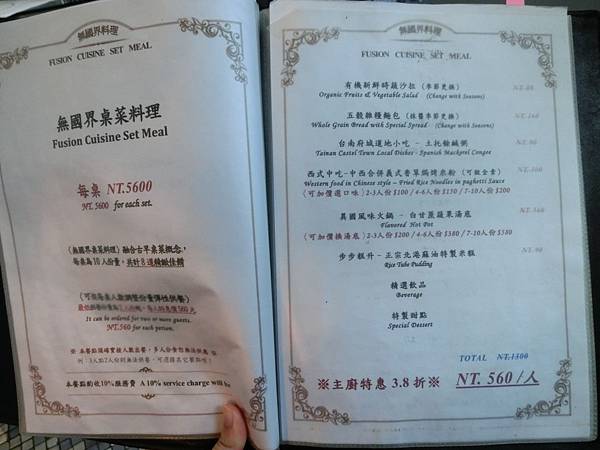 無國界料理
FUSION CUISINE SET MEAL
無國界桌菜料理
Fusion Cuisine Set Meal
每桌 NT.5600
NT. 5600 for each set.
《無國界桌菜料理》融合古早桌菜概念,
每桌為10人份量, 共計8道精緻佳餚
It can be ordered for two or more guests.
NT.560 for each person.
本餐點酌收10%服務費 A 10% service charge will be
無國界料理
FUSION CUISINE SET MEAL
有機新鮮時蔬沙拉 (季節更換)
Organic Fruits & Vegetable Salad (Change with Seasons)
五穀雜糧麵包 (抹醬季節更換)
Whole Grain Bread with Special Spread (Change with Seasons)
台南府城道地小吃 - 土托魠鹹粥
Tainan Castel Town Local Dishes - Spanish Mackerel Congee
西式中吃-中西合併義式香草焗烤米粉 (可做全素)
Western food in Chinese style – Fried Rice Noodles in paghetti Sauce
《可加價選口味》2-3人份 $100 / 4-6人份 $150 / 7-10人份 $200
異國風味火鍋 - 白甘蔗蔬果湯底
Flavored Hot Pot
《可加價換湯底》2-3人份 $200 / 4-6人份 $380 / 7-10人份 $580
步步糕升 - 正宗北港蘇油特製米糕
Rice Tube Pudding
精選飲品
Beverage
特製甜點
Special Dessert
TOTAL NT.1500
※主廚特惠 3.8 折※ NT. 560 /人